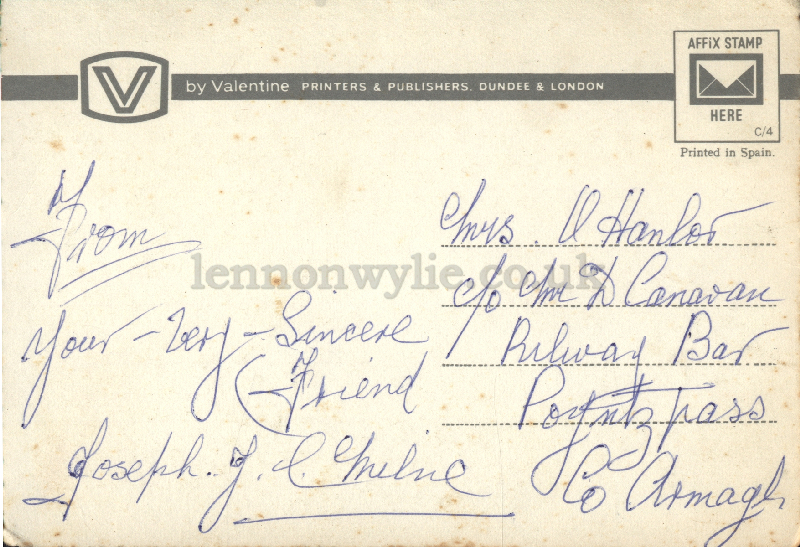 V
by Valentine PRINTERS & PUBLISHERS. DUNDEE & LONDON
AFFIX STAMP
HERE
C/4
Printed in Spain.
From
Your - Very - Sincere
(Friend
Joseph. J. C Milne
Mrs. O Hanlor
c/o Mr D Canavan
Rilway Bar
Poyntzpass
Co Armagh
lennonwylie.co.uk